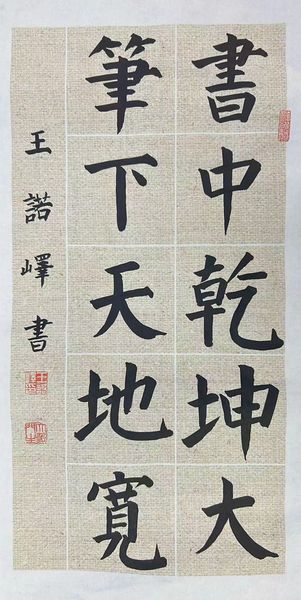 書中乾坤大
筆下天地寬
王諾嶧書